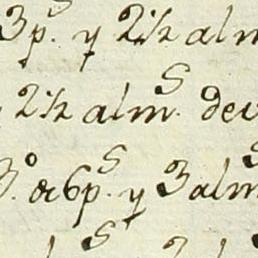 3p. y 2½ alm
2½ alm.s dev
3.o o 6p.s y 3 alm